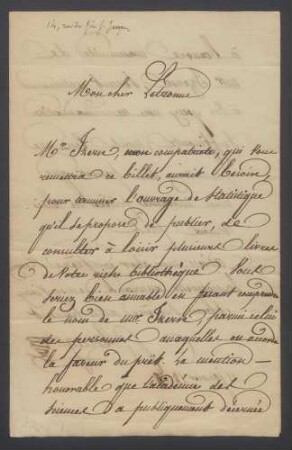 Mon cher Letronne
Mr. Frere, mon compatriote, qui vous
remettra ce billet, aurait besoin,
pour terminer l'ouvrage de Statistique
qu'il se propose de publier, de
consulter à loisir plusieurs livres
de Notre riche bibliothèque. Vous
seriez bien aimable en faisant comprendre
le nom de mr. Frere, parmi celui
des personnes auxquelles on accorde
la faveur du prêt. La mention
honorable que l'académie des
sciences a publiquement décernée